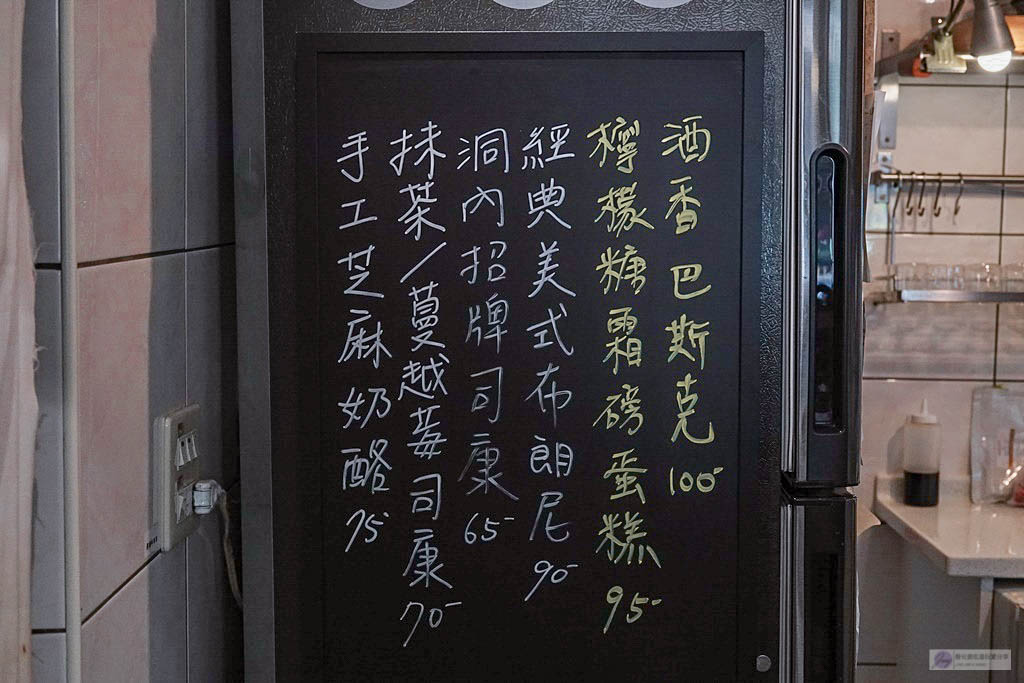 酒香巴斯克100-
檸檬糖霜磅蛋糕95-
經典美式布朗尼90-
洞內招牌司康65-
抹茶/蔓越莓司康70-
手工芝麻奶酪75